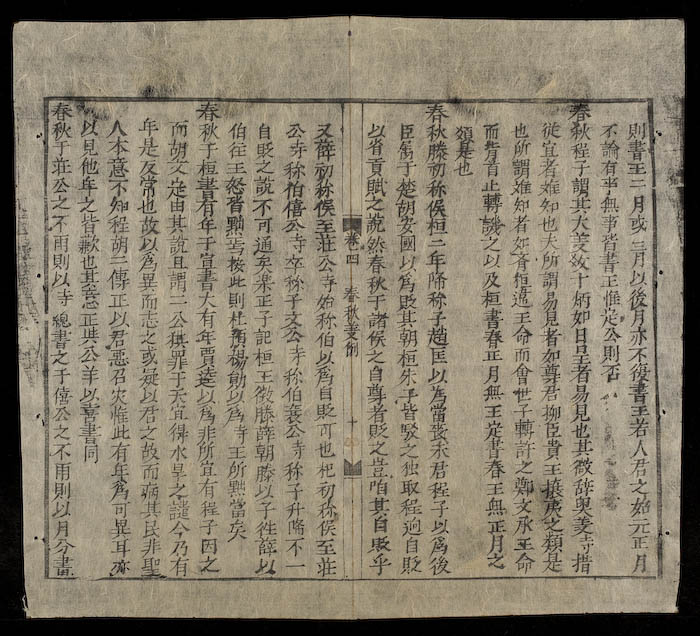 則書王二月或三月以後月亦不復書王若人君之始元正月
不論有事無事皆書王惟定公則否
春秋程子謂其大義数十炳如日星者易見也其微辞奥義寺措
從宜者难知也夫所謂易見者如尊君抑臣貴王攘夷之類是
也所謂难知者如齊桓違王命而會世子轉許之鄭文承王命
而背者止轉譏之以及桓書春正月無王定書春王無正月之
類是也
春秋滕初称侯桓二年降称子趙匡以為當喪未君程子以為後
臣属于楚胡安國以為貶其朝桓朱子皆駁之独取程迥自貶
以省貢賦之說然春秋于諸侯之自尊者貶之豈其自貶乎
卷四 春秋義例 十
又薛初称侯至莊公寺始称伯以為自貶可也杞初称侯至莊
公寺称伯僖公寺卒称子文公寺称伯襄公寺称子升降不一
自貶之說不可通矣樂正子記桓王徵滕薛朝滕以子徃薛以
伯徃王怒皆黜焉按此則杜預楊勛以為寺王所黜當矣
春秋于桓書有年于宣書大有年賈逵以為非所宜有程子因之
而胡文定由其說且謂二公獲罪于天宜得水旱之譴今乃有
年是反常也故以為異而志之或疑以君之故而病其民非聖
人本意不知程胡二傳正以君惡召灾惟此有年為可異耳亦
以見他年之皆歉也其意正與公羊以喜書同
春秋于莊公之不雨則以寺總書之于僖公之不雨則以月分書